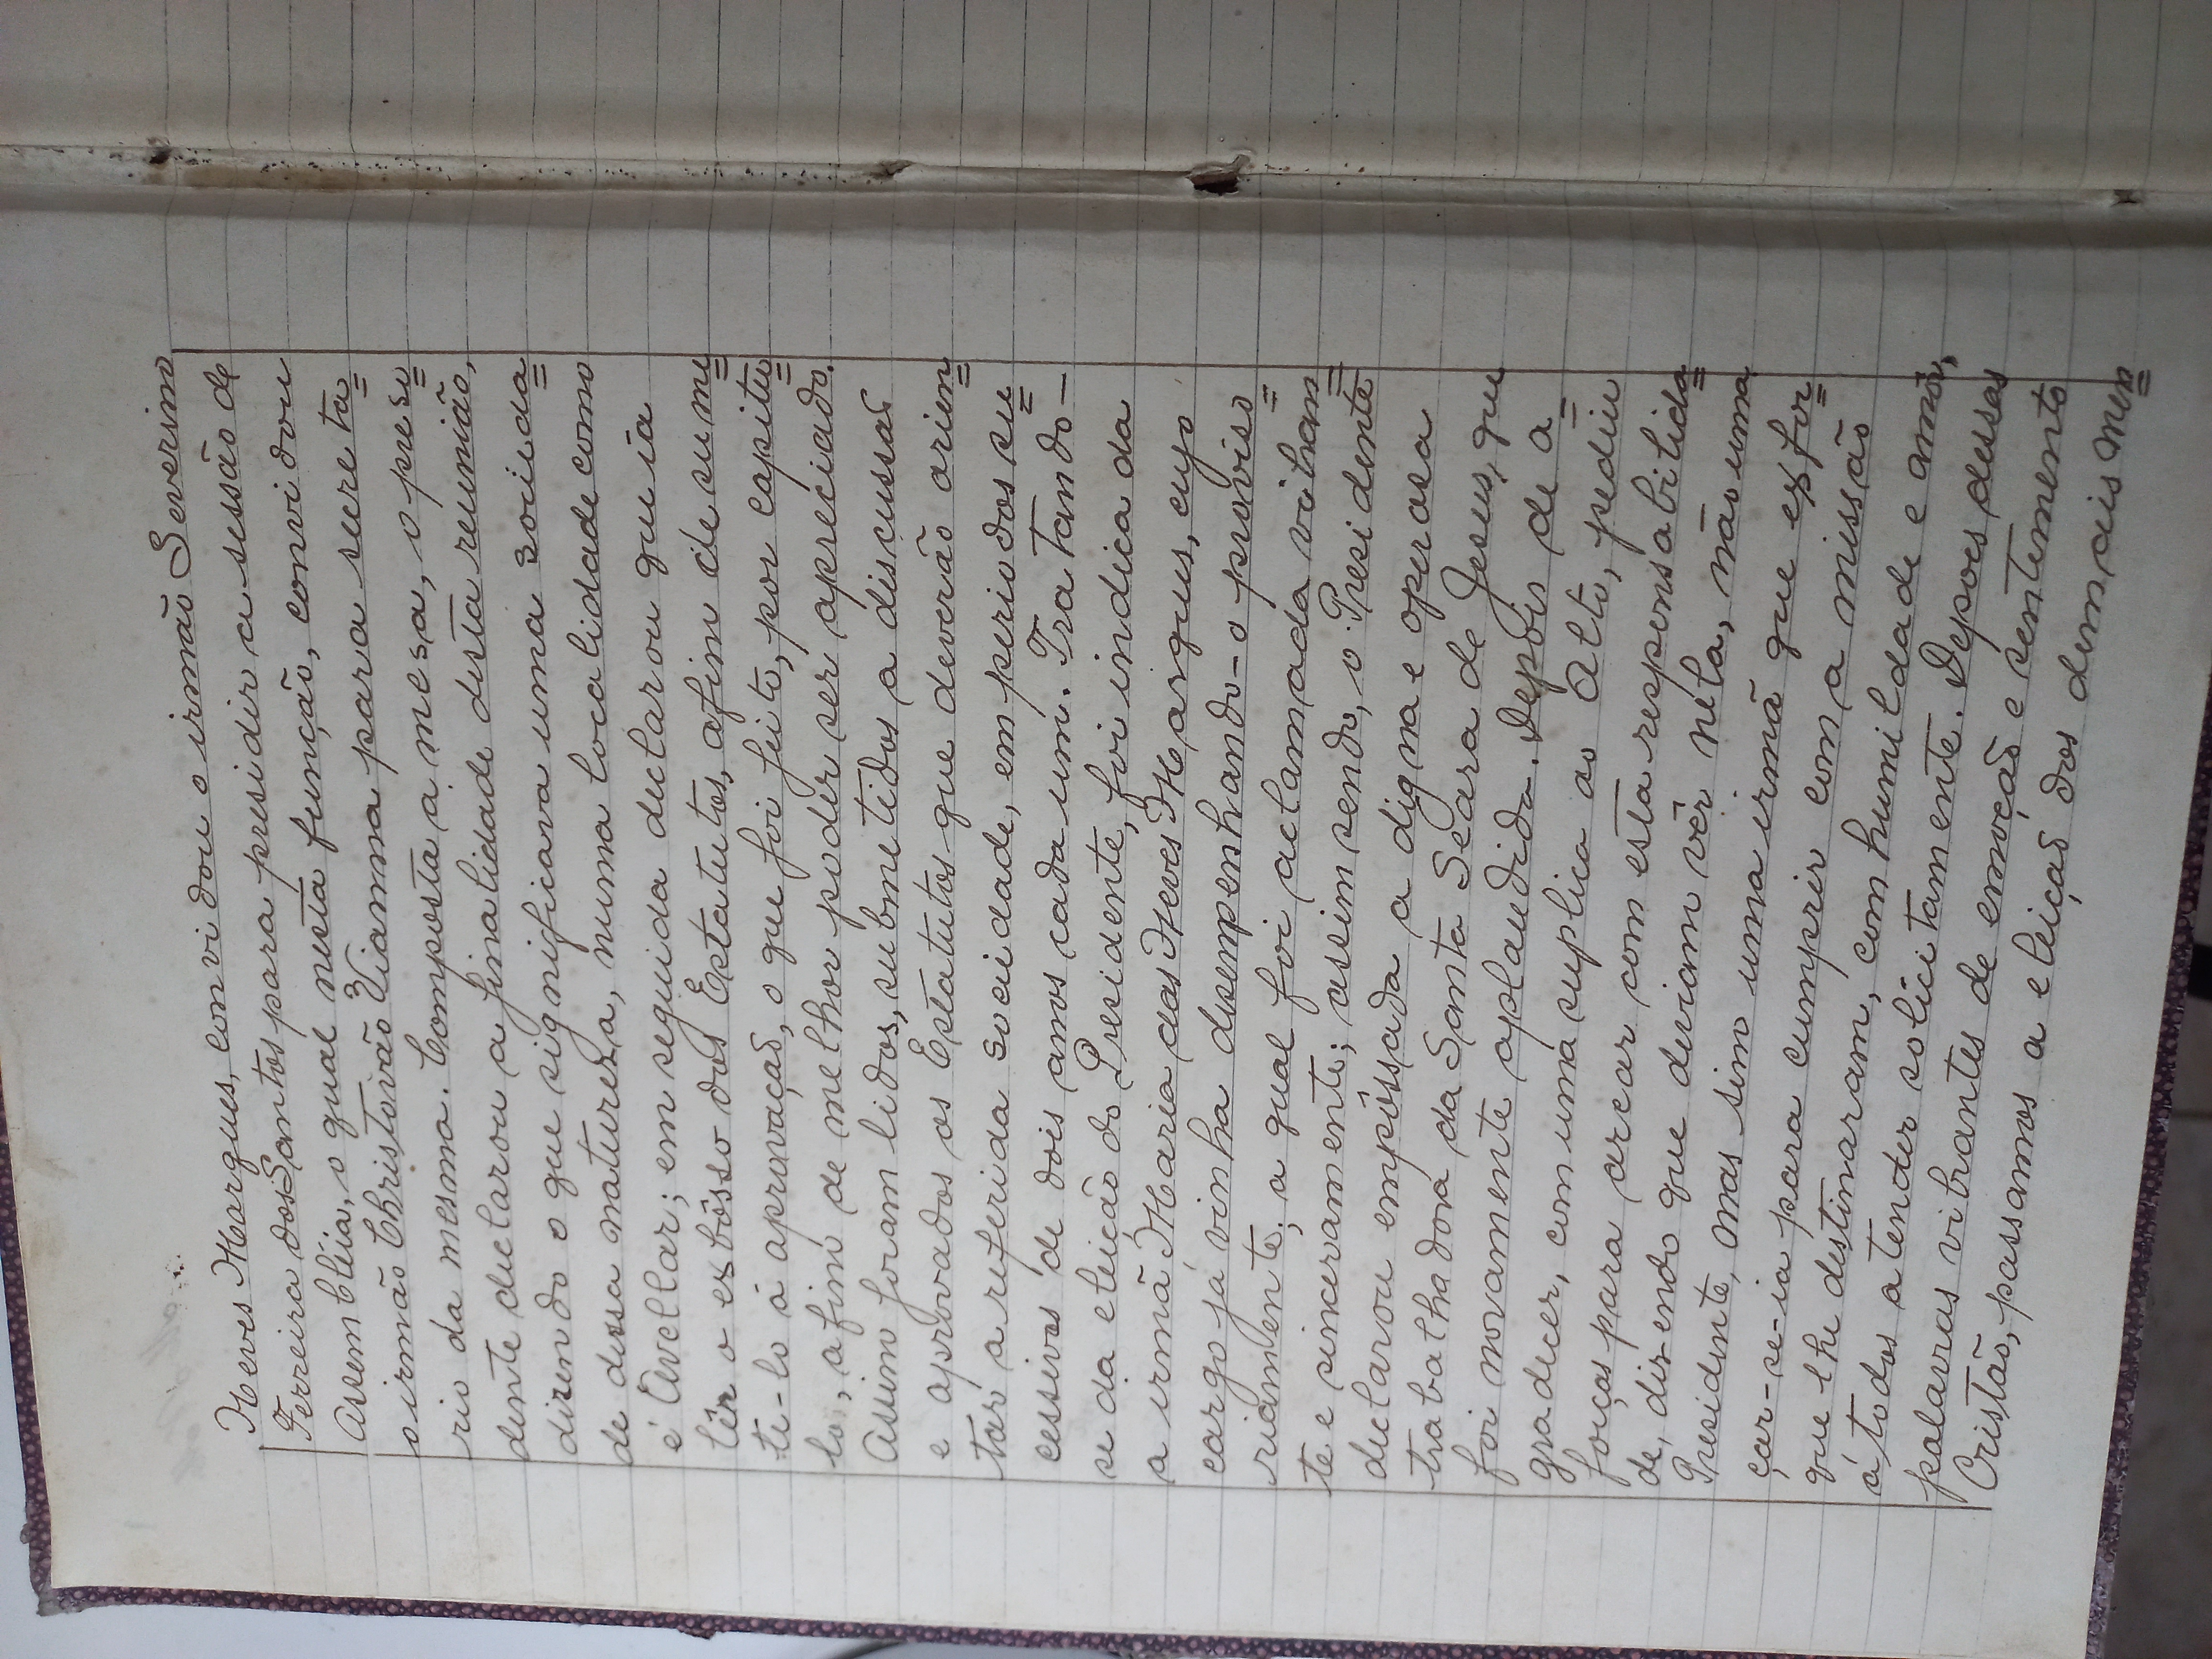 Neves Marques, convidou o irmão Severino
Ferreira dos Santos para presidir a sessão de
Assembléia, o qual nesta função, convidou
o irmão Christovão Vianna para secreta=
rio da mesma. Composta a mesa, o presi=
dente declarou a finalidade desta reunião,
dizendo o que significava uma socieda=
de dessa natureza, numa localidade como
é Avellar; em seguida declarou que ia
lêr o esbôsso dos Estatutos, afim de sume=
te-lo á aprovação, o que foi feito, por capitu=
lo, afim de melhor poder ser apreciado.
Assim foram lidos, submetidos a discussão
e aprovados os Estatutos que deverão orien=
tar a referida sociedade, em periodos su=
cessivos de dois anos cada um. Tratando-
se da eleição do Presidente, foi indicada
a irmã Maria das Neves Marques, cujo
cargo já vinha desempenhando-o proviso=
riamente; a qual foi aclamada vibran=
te e sinceramente; assim sendo, o Presidente
declarou empôssada a digna e operosa
trabalhadora da Santa Seara de Jesus, que
foi novamente aplaudida. Depois de a=
gradecer, com uma suplica ao Alto, pediu
forças para arcar com esta responsabilida=
de, dizendo que deviam vêr nela, não uma
Presidente, mas sim uma irmã que esfor=
çar-se-ia para cumprir com a missão
que lhe destinaram, com humildade e amôr,
á todos atender solicitamente. Depois dessas
palavras vibrantes de emoção e sentimento
Cristão, passamos a eleição dos demais mem=